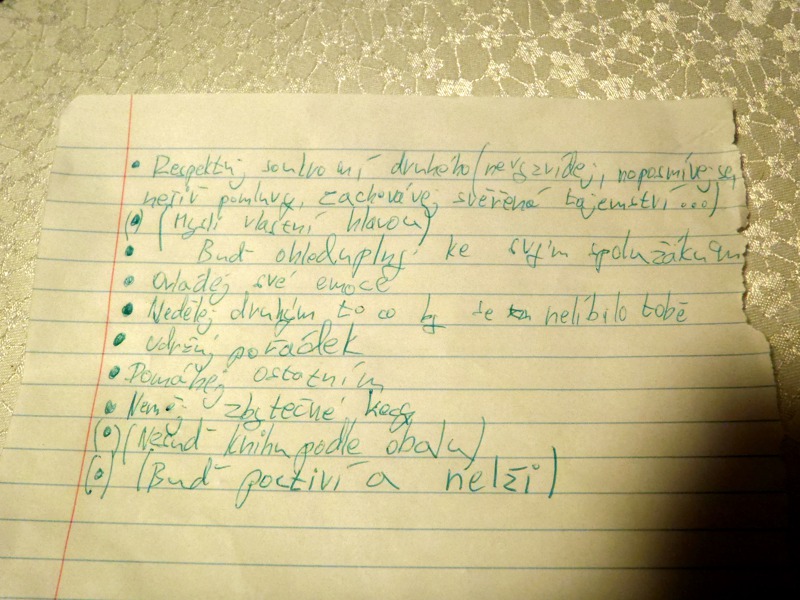 • Respektuj soukromí druhého (nevyzvídej, neposmívej se,
nešiř pomluvy, zachovávej svěřená tajemství...)
(•) (Mysli vlastní hlavou)
• Buď ohleduplný ke svým spolužákům
• Ovládej své emoce
• Nedělej druhým to co by se nelíbilo tobě
• Udržuj pořádek
• Pomáhej ostatním
• Neměj zbytečné kecy
(•) (Nesuď knihu podle obalu)
(•) (Buď poctiví a nelži)